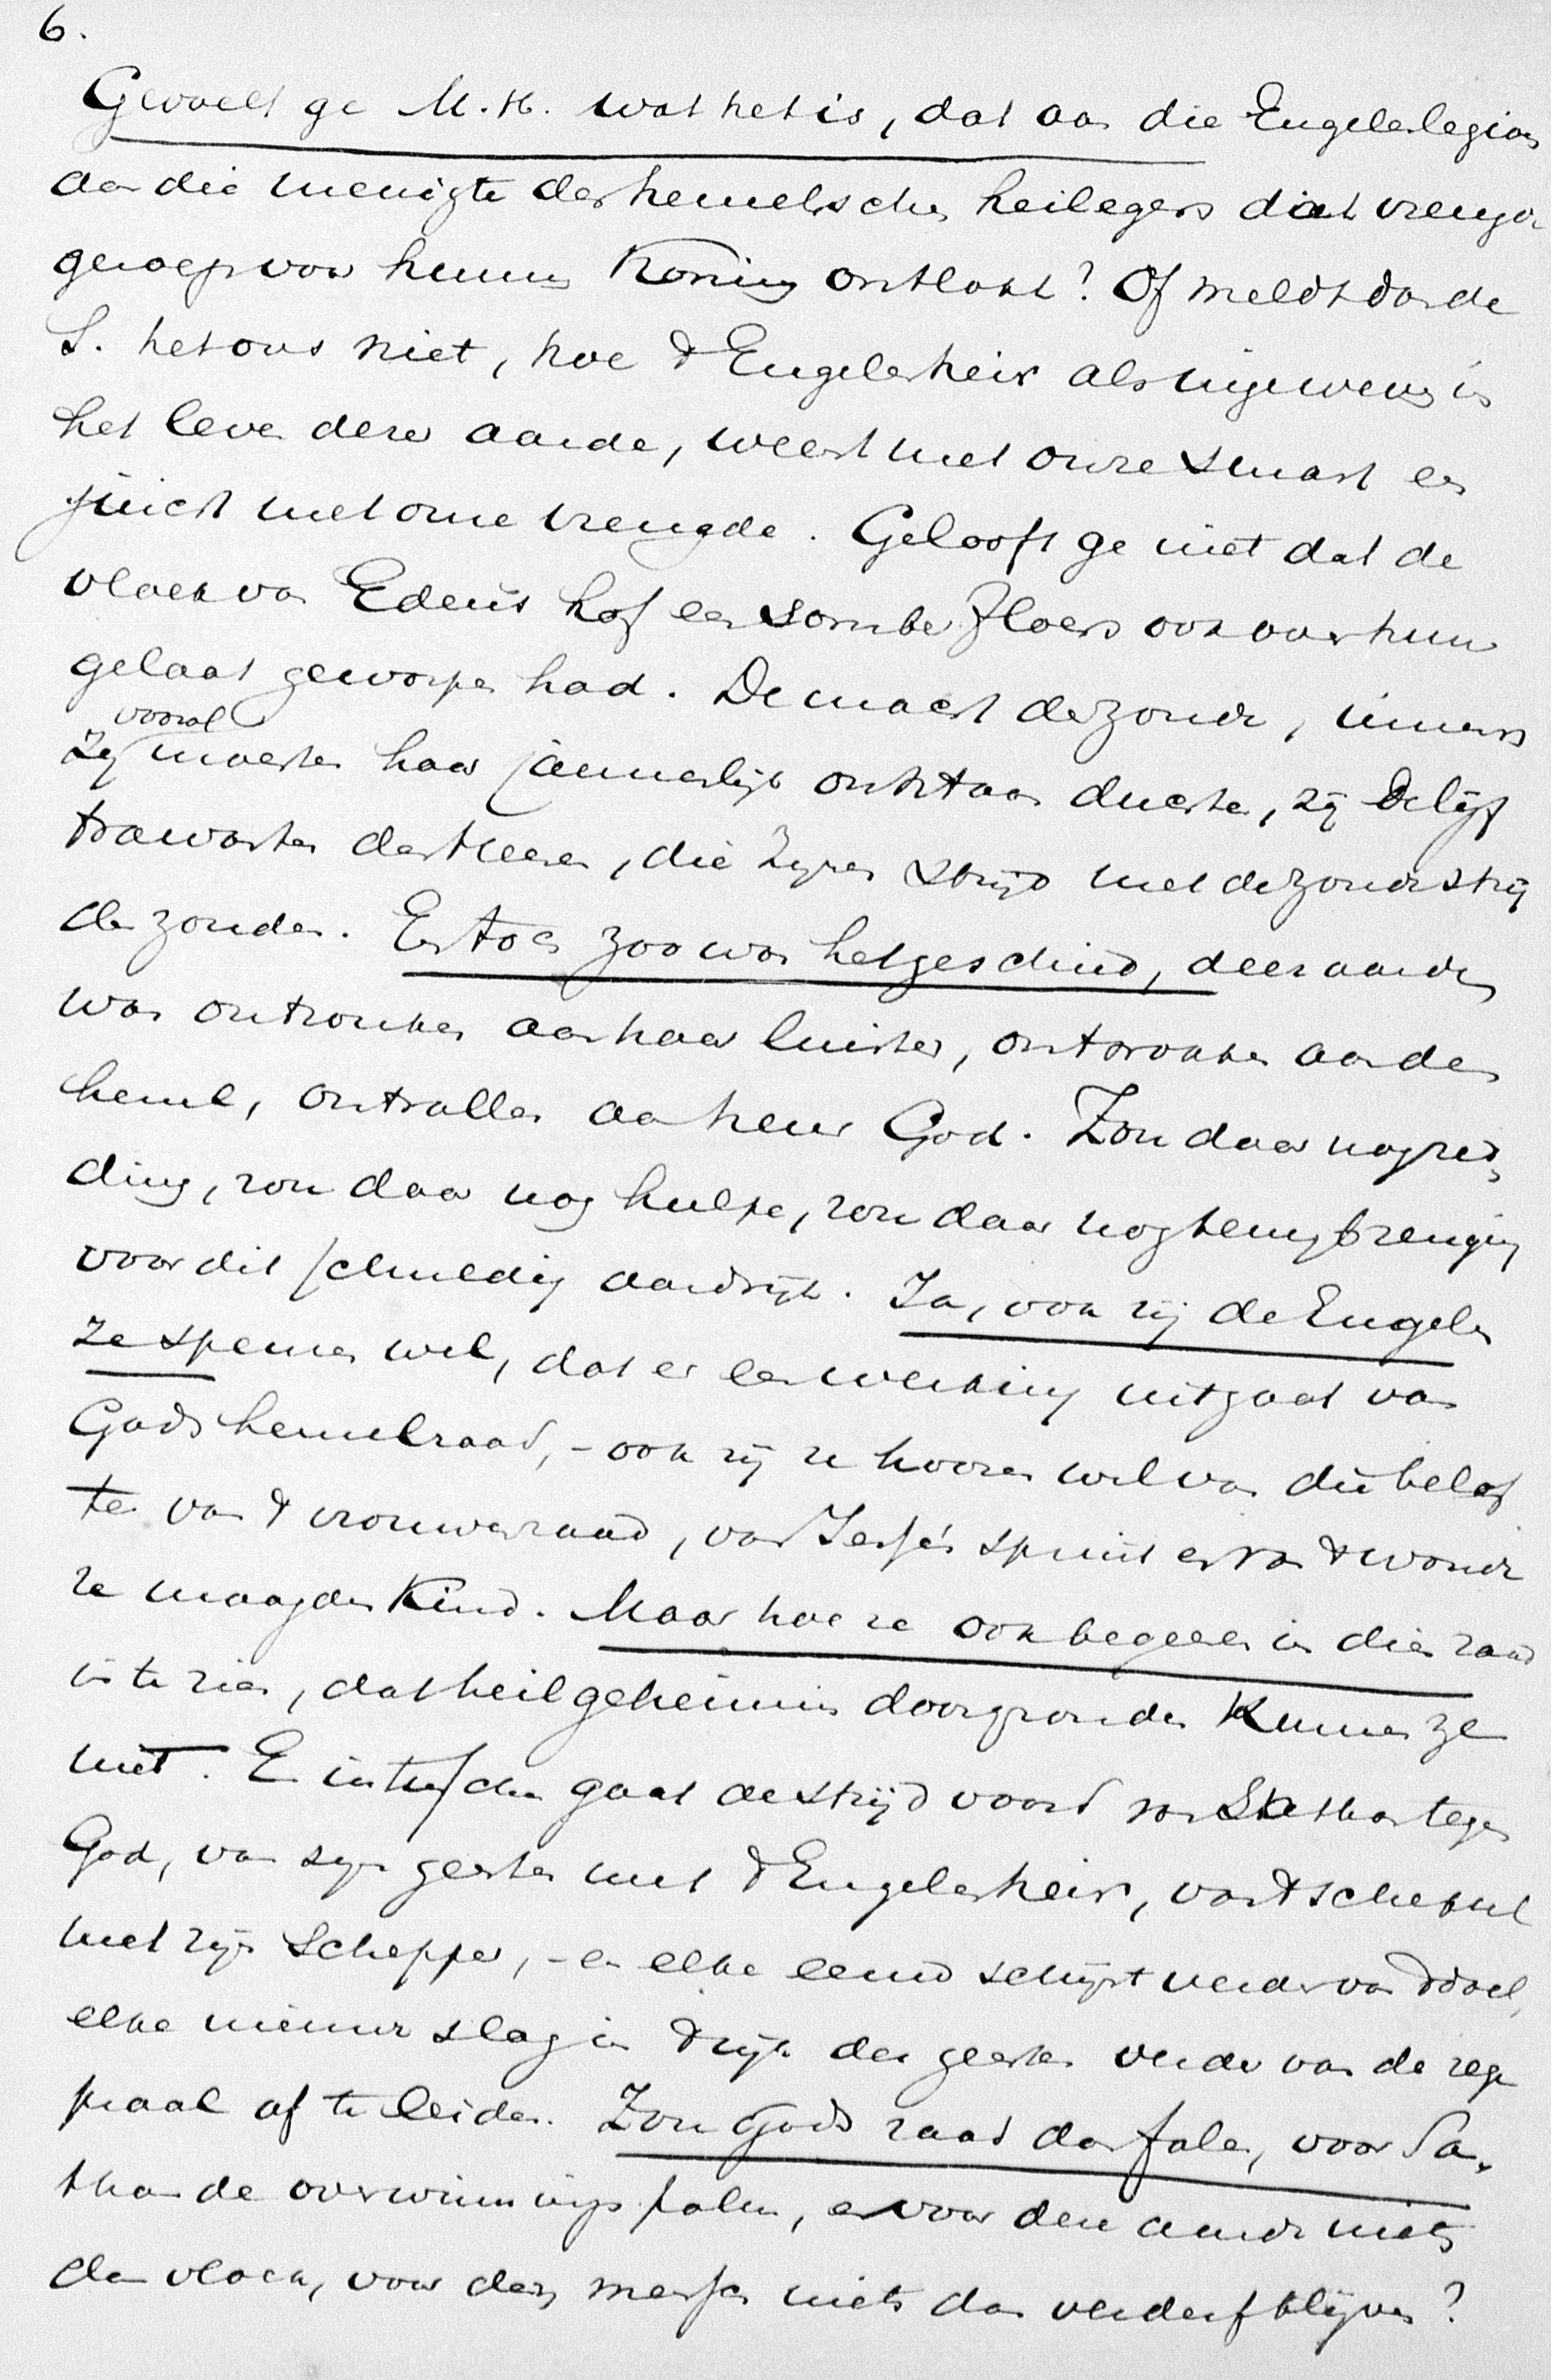 6.
Gevoelt ge M.H. wat het is, dat aan die Engelenlegioen
aan die menigte der hemelsche heiligen dat vreugde
geroep van hunne Koning ontlokt? Of meldt dan de
S. het ons niet, hoe 't Engelenheir als ingeweven is
het leven dezer aarde, weent met onze smart en
juicht met onze vreugde. Gelooft ge niet dat de
vloek van Edens hof een somber floers ook over hun
gelaat geworpen had. De macht der zonde, immers
zij vooral moesten haar jammerlijk ontstaan duchten, zij de lijf
trawanten des Heeren, die Zijnen strijd met de zonde strij
den zouden. En toch zoo was het geschied, deez aarde
was ontzonken aan haar luister, ontzonken aan den
hemel, ontvallen aan heur God. Zou daar nog red,
ding, zou daar nog hulpe, zou daar nog terugbrenging
voor dit schuldig aardrijk. Ja, ook zij de Engelen
ze speuren wel, dat er een werking uitgaat van
Gods hemelraad, - ook zij ze hooren wel van die belof
te van 't vrouwenzaad, van Isaï's spruit en van 't wond
re maagden Kind. Maar hoe ze ook begeeren in dien raad
in te zien, dat heilgeheimnis doorgronden kunnen ze
niet. En intusschen gaat de strijd voort van Sathan tegen
God, van zijn geesten met 't Engelenheir, van 't schepsel
met zijn Schepper, - en elke eeuw schijnt verder van 't doel,
elke nieuwe slag in 't rijk der geesten verder van de zege
praal af te leiden. Zou Gods raad dan falen, voor Sa,
than de overwinningspalm, en voor deze aarde niets
dan vloek, voor den mensch niets dan verderf blijven?